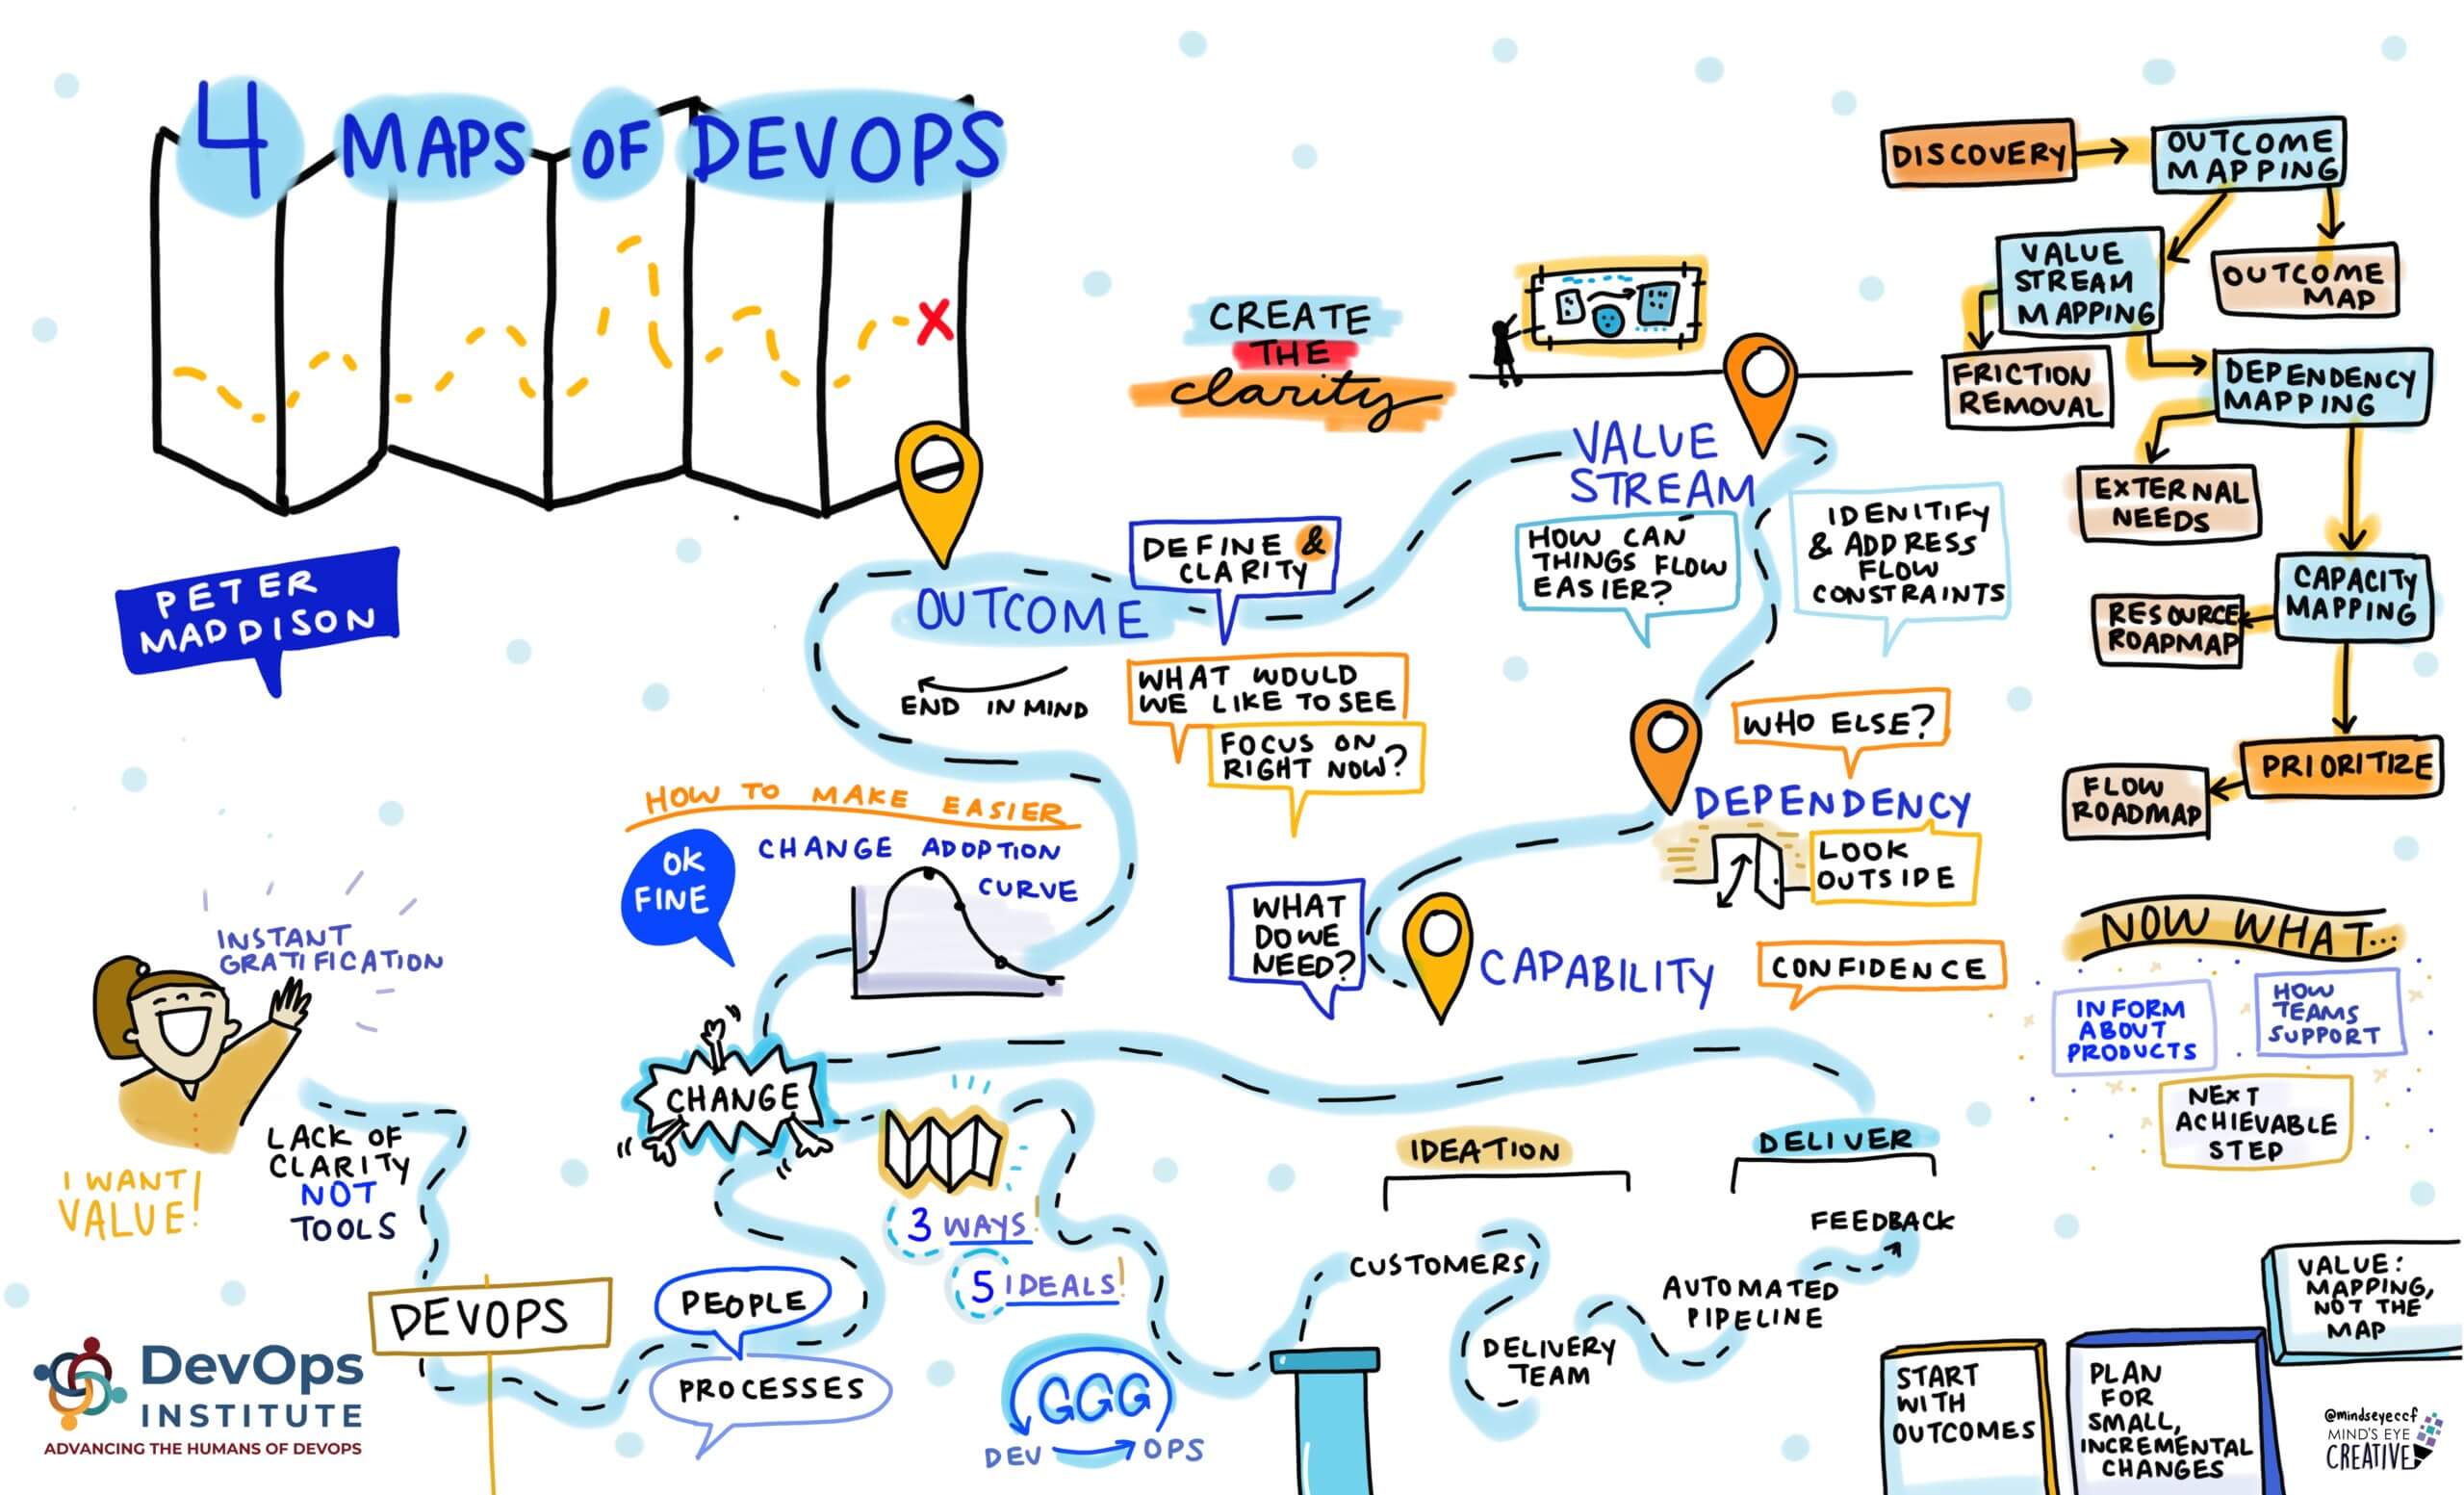 4 MAPS OF DEVOPS
PETER
MADDISON
CREATE
THE
clarity
OUTCOME
DEFINE &
CLARITY
END IN MIND
WHAT WOULD
WE LIKE TO SEE
FOCUS ON
RIGHT NOW?
VALUE
STREAM
HOW CAN
THINGS FLOW
EASIER?
IDENITIFY
& ADDRESS
FLOW
CONSTRAINTS
WHO ELSE?
DEPENDENCY
LOOK
OUTSIDE
WHAT
DO WE
NEED?
CAPABILITY
CONFIDENCE
HOW TO MAKE EASIER
OK
FINE
CHANGE ADOPTION
CURVE
INSTANT
GRATIFICATION
I WANT
VALUE!
LACK OF
CLARITY
NOT
TOOLS
DEVOPS
PEOPLE
PROCESSES
CHANGE
3 WAYS!
5 IDEALS!
GGG
DEV OPS
IDEATION
DELIVER
CUSTOMERS
DELIVERY
TEAM
AUTOMATED
PIPELINE
FEEDBACK
DISCOVERY
OUTCOME
MAPPING
VALUE
STREAM
MAPPING
OUTCOME
MAP
FRICTION
REMOVAL
DEPENDENCY
MAPPING
EXTERNAL
NEEDS
CAPACITY
MAPPING
RESOURCE
ROAPMAP
PRIORITIZE
FLOW
ROADMAP
NOW WHAT...
INFORM
ABOUT
PRODUCTS
HOW
TEAMS
SUPPORT
NEXT
ACHIEVABLE
STEP
START
WITH
OUTCOMES
PLAN
FOR
SMALL,
INCREMENTAL
CHANGES
VALUE:
MAPPING,
NOT THE
MAP
DevOps
INSTITUTE
ADVANCING THE HUMANS OF DEVOPS
@mindseyeccf
MIND'S EYE
CREATIVE